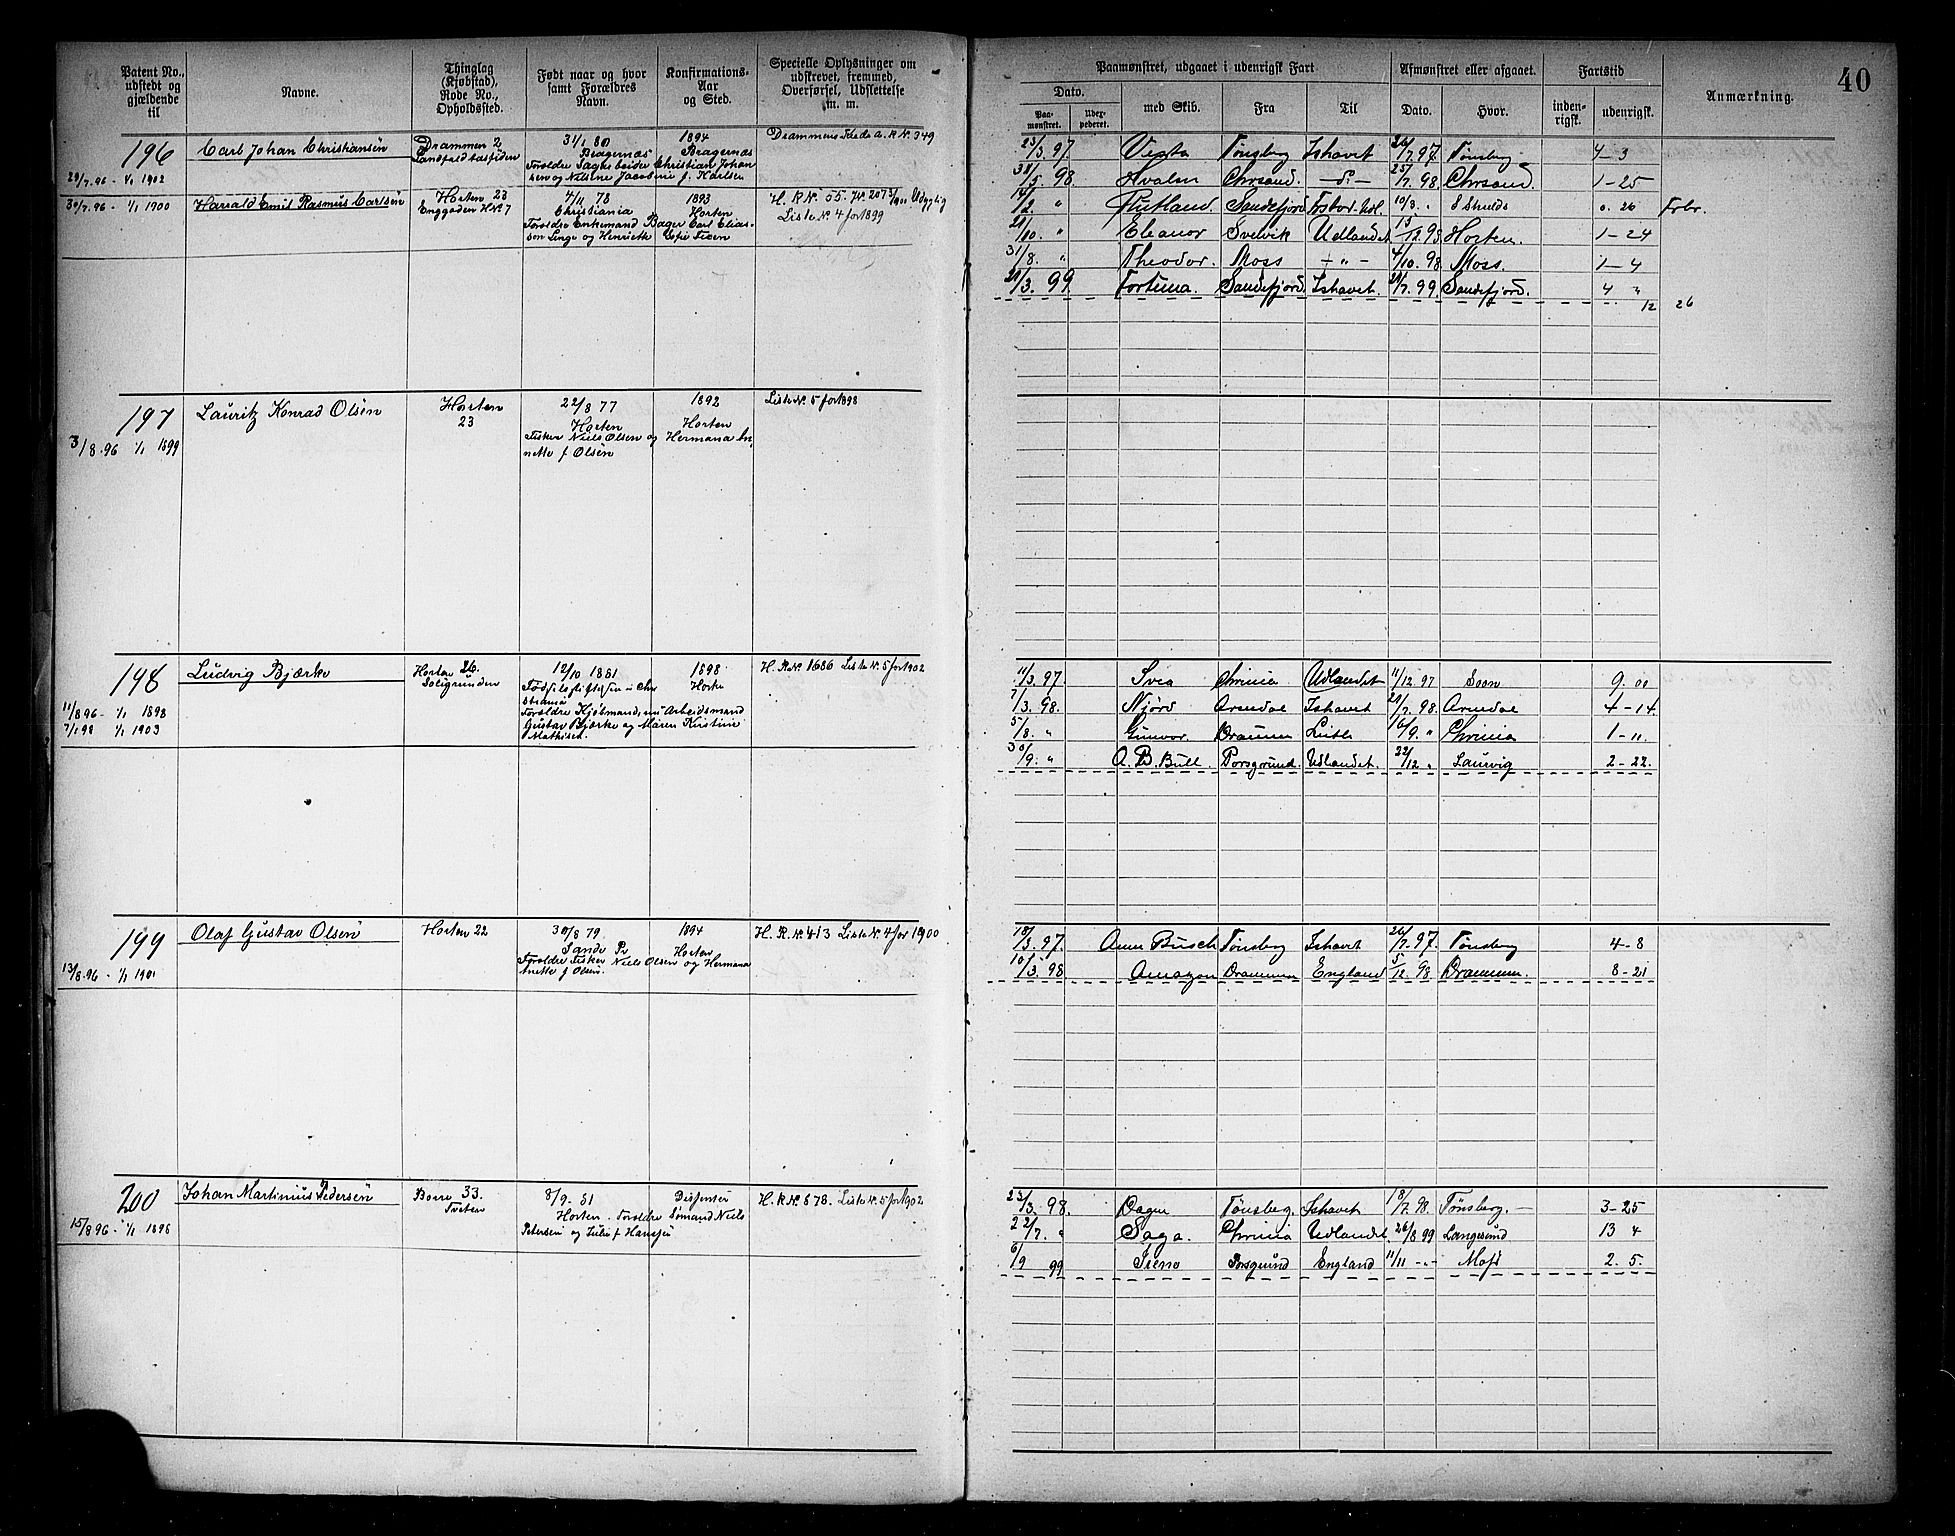 Patent No., udstedt og gjældende til
Navne.
Thinglag (Kjøbstad), Rode No., Opholdssted.
Født naar og hvor samt Forældres Navn.
Konfirmations-Aar og Sted.
Specielle Oplysninger om udskrevet, fremmed, Overførsel, Udslettelse m. m.
Paamønstret, udgaaet i udenrigsk Fart
Afmønstret eller afgaaet.
Fartstid
Anmærkning.
40
Dato.
Paa-mønstret.
Udex-pederet.
med Skib.
Fra
Til
Dato.
Hvor.
inden-rigsk.
udenrigsk.
196
Carl Johan Christiansen
Drammen 2
31/1 80
1894
Drammens Rode a. R No. 349
Bragernæs
Bragernæs
29/7.96 - 1/1 1902
30/7.96 - 1/1 1900
Harald Emil Rasmus Carlsen
Horten 23
Enggaden H No. 7
4/11 78
1893
Christiania
Horten
H. R No. 55.
Liste No. 4 for 1899
23/3.97. Vesta Tønsberg Ishavet 26/7.97. Tønsberg 4-3
5.98 Hvalen Chrsand. -d°- 25/7.98 Chrsand 1-25
2. " Rutland. Sandefjord 10/3. " S Shields 0. 26 Frbr.
21/10. " Eleanor Svelvik Udlandet 98 Horten. 1-24
31/8. " Theodor. Moss -"- 4/10.98 Moss. 1-4
21/3.99. Fortuna. Sandefjord Ishavet 21/7.99. Sandefjord. 4 "
12 26
197
Lauritz Konrad Olsen
Horten
23
22/8 77
1892
Liste No. 5 for 1898
Horten
Horten
3/8.96 1/1 1899
Fisker Niels Olsen og Hermana An-
nette f Olsen
198
Ludvig Bjærke
Horten 26.
12/10 1881
1898
H. R No. 1686 Liste No. 5 for 1902
Fødselsstiftelsen i Chr
stiania
11/8.96 - 1/1 1898
7/1 98 1/1 1903
Gustav Bjerke og Maren Kristine
Mathisen
11/3.97. Svea Chrinia Udlandet 11/12.97 Soon 9.00
7/3.98. Njörd Arendal Ishavet 21/7.98. Arendal 4-14
5/8. " Gunvor. Drammen Leith 16/9. " Chrinia 1-11
30/9. " A. B. Bull. Porsgrund Udlandet. 22/12 " Laurvig 2-22.
199
Olaf Gustav Olsen
Horten 22
30/8 79
1894
H. R. No. 413 Liste No. 4 for 1900
Sande Pr
Horten
13/8.96 - 1/1 1901
Forældre Fisker Niels Olsen og Hermana
Anette f Olsen.
18/3.97. Busch Tønsberg Ishavet 26/7.97. Tønsberg 4-8
10/3.98. Amazon Drammen England 5/12.98 Drammen. 8-21
200
Johan Martinius Pedersen
Borre 33.
Tveten
8/9 - 81
H. R No. 678. Liste No. 5 for 1902
15/8.96 - 1/1 1898
Horten. Forældre Sømand Niels
Petersen og Julie f Hansen
23/3.98. Dagny Tønsberg. Ishavet 18/7.98. Tønsberg. 3-25
22/7. " Saga. Chrinia Udlandet 26/8 99 Langesund 13 4
6/9 99 Porsgrund England 11/11 -"- Moss 2. 5.